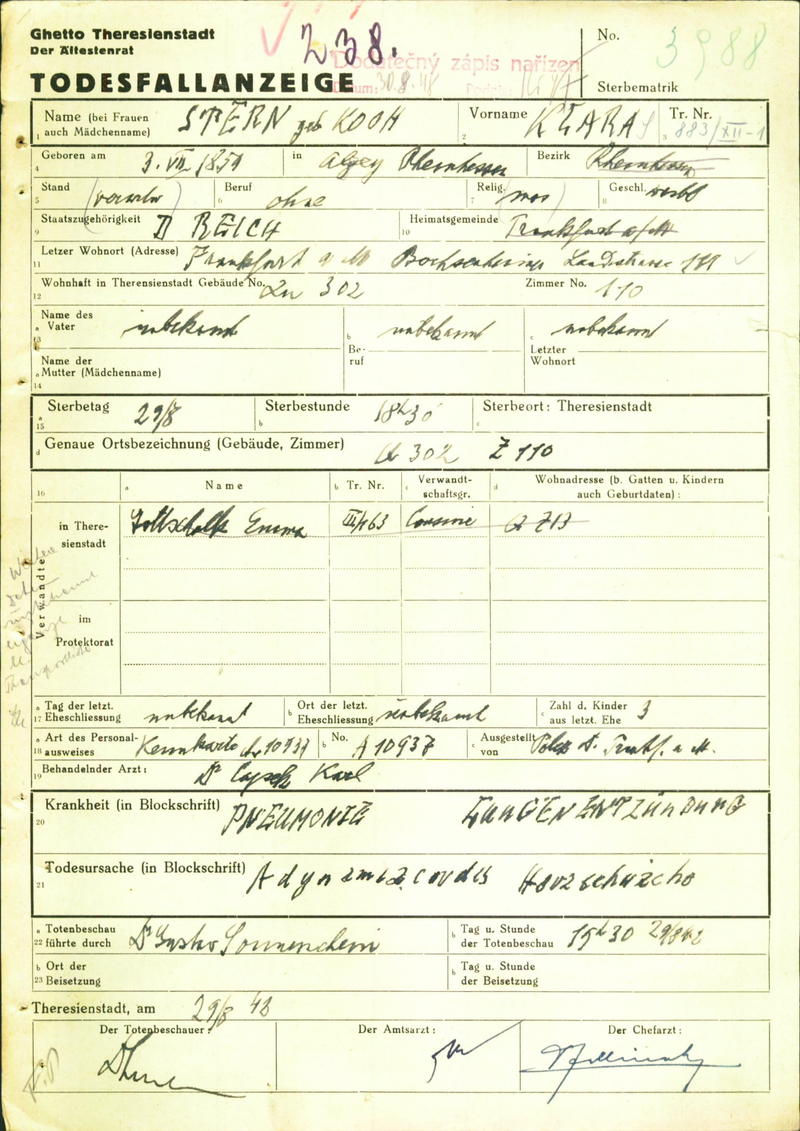 Ghetto Theresienstadt
Der Ältestenrat
238.
Dodatečný zápis nařízen
No. 3988
TODESFALLANZEIGE
30.8.48
Sterbematrik
Name (bei Frauen auch Mädchenname) STERN geb KOCH Vorname KLARA S Tr. Nr. 883/XII-1
Geboren am 3. VII 1859 in Alzey Rheinhessen Bezirk Rheinhessen
Stand verwitw Beruf ohne Relig. mos Geschl. weibl
Staatszugehörigkeit D REICH Heimatsgemeinde Frankfurt a/M
Letzer Wohnort (Adresse) Frankfurt a M Landstrasse
Wohnhaft in Therensienstadt Gebäude No. 302 Zimmer No. 110
Name des Vater unbekannt Beruf unbekannt Letzter Wohnort unbekannt
Name der Mutter (Mädchenname)
Sterbetag 29/8 Sterbestunde 18h30 Sterbeort: Theresienstadt
Genaue Ortsbezeichnung (Gebäude, Zimmer) Q 302 Z 110
Name Tr. Nr. Verwandtschaftsgr. Wohnadresse (b. Gatten u. Kindern auch Geburtdaten) :
Verwandte
in Theresienstadt Gottschalk Emma Cousine Q 713
im Protektorat
Tag der letzt. Eheschliessung unbekannt Ort der letzt. Eheschliessung unbekannt Zahl d. Kinder aus letzt. Ehe 3
Art des Personalausweises Kennkarte No. A 10937 Ausgestellt von Frankf. a M.
Behandelnder Arzt: Dr Karl
Krankheit (in Blockschrift) PNEUMONIE LUNGENENTZÜNDUNG
Todesursache (in Blockschrift) Adynamia cordis Herzschwäche
Totenbeschau führte durch Dr Gustav Sonnenschein Tag u. Stunde der Totenbeschau 19h30 29/8 42
Ort der Beisetzung Tag u. Stunde der Beisetzung
Theresienstadt, am 29/8 42
Der Totenbeschauer: Der Amtsarzt: Der Chefarzt: